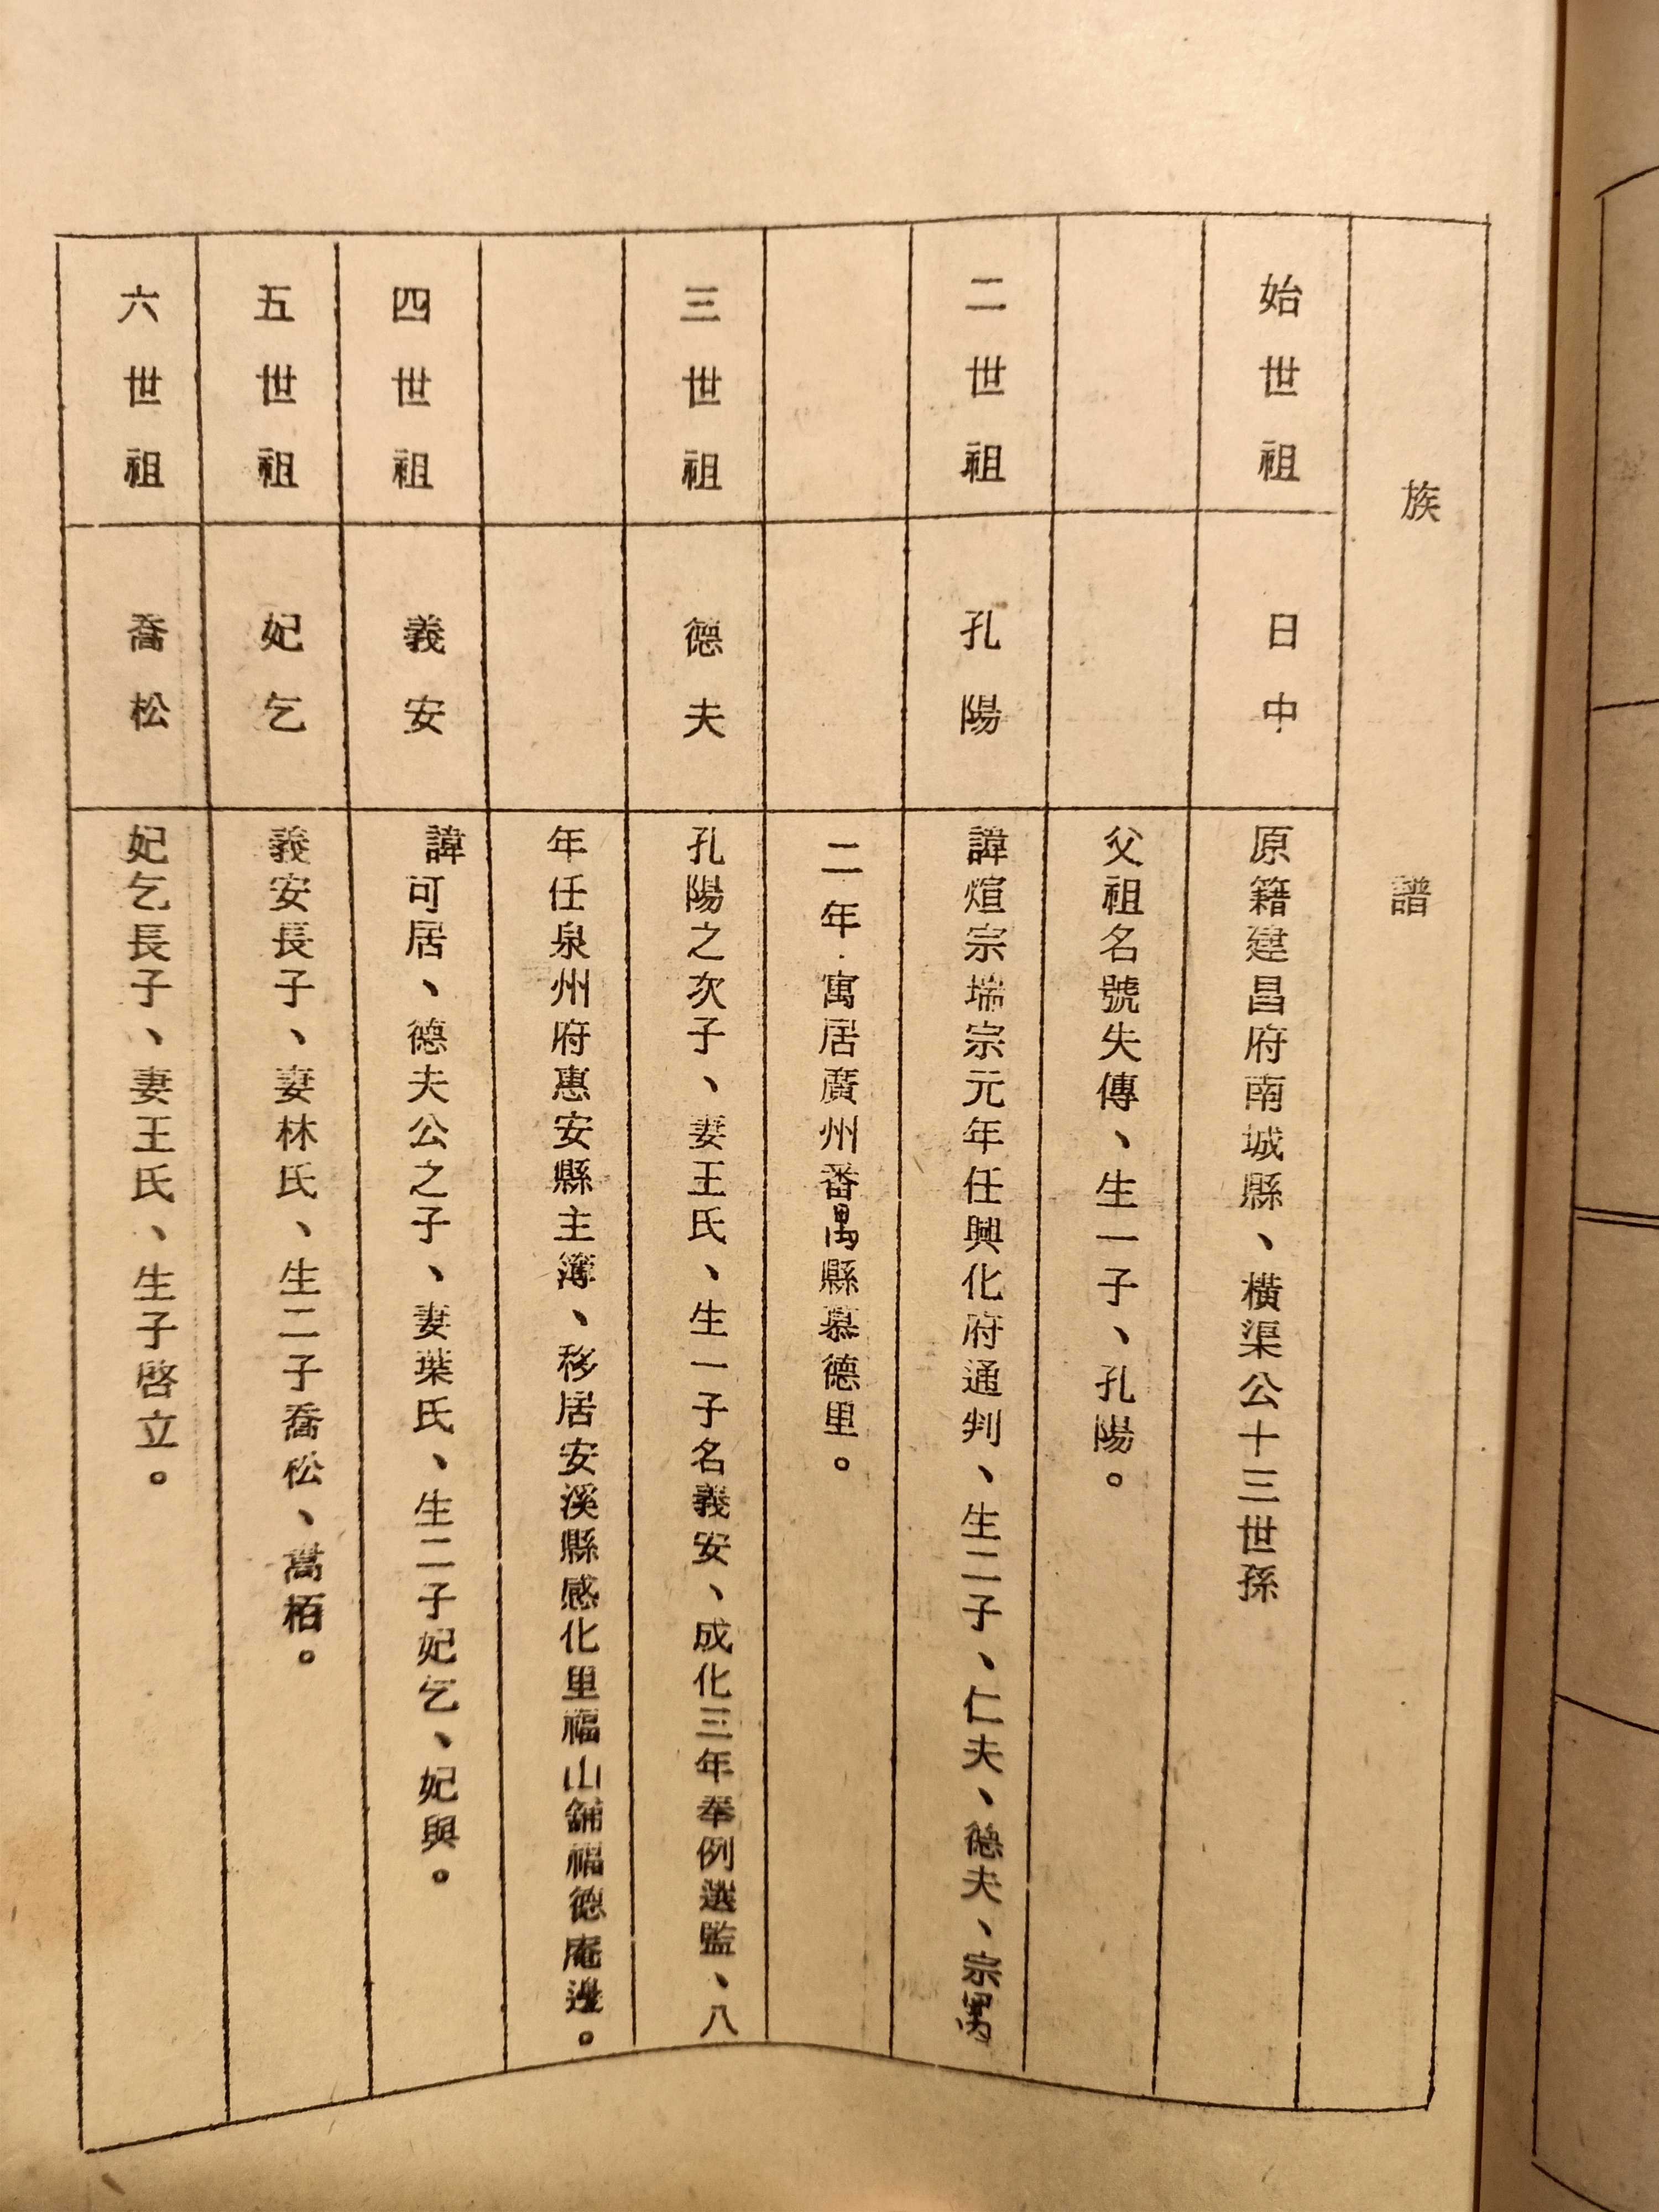 族譜
始世祖 日中 原籍建昌府南城縣、橫渠公十三世孫
父祖名號失傳、生一子、孔陽。
二世祖 孔陽 諱煊宗端宗元年任興化府通判、生二子、仁夫、德夫、宗禺
二年.寓居廣州番禺縣慕德里。
三世祖 德夫 孔陽之次子、妻王氏、生一子名義安、成化三年奉例選監、八
年任泉州府惠安縣主簿、移居安溪縣感化里福山舖福德庵邊。
四世祖 義安 諱可居、德夫公之子、妻葉氏、生二子妃乞、妃與。
五世祖 妃乞 義安長子、妻林氏、生二子喬松、嵩栢。
六世祖 喬松 妃乞長子、妻王氏、生子啓立。